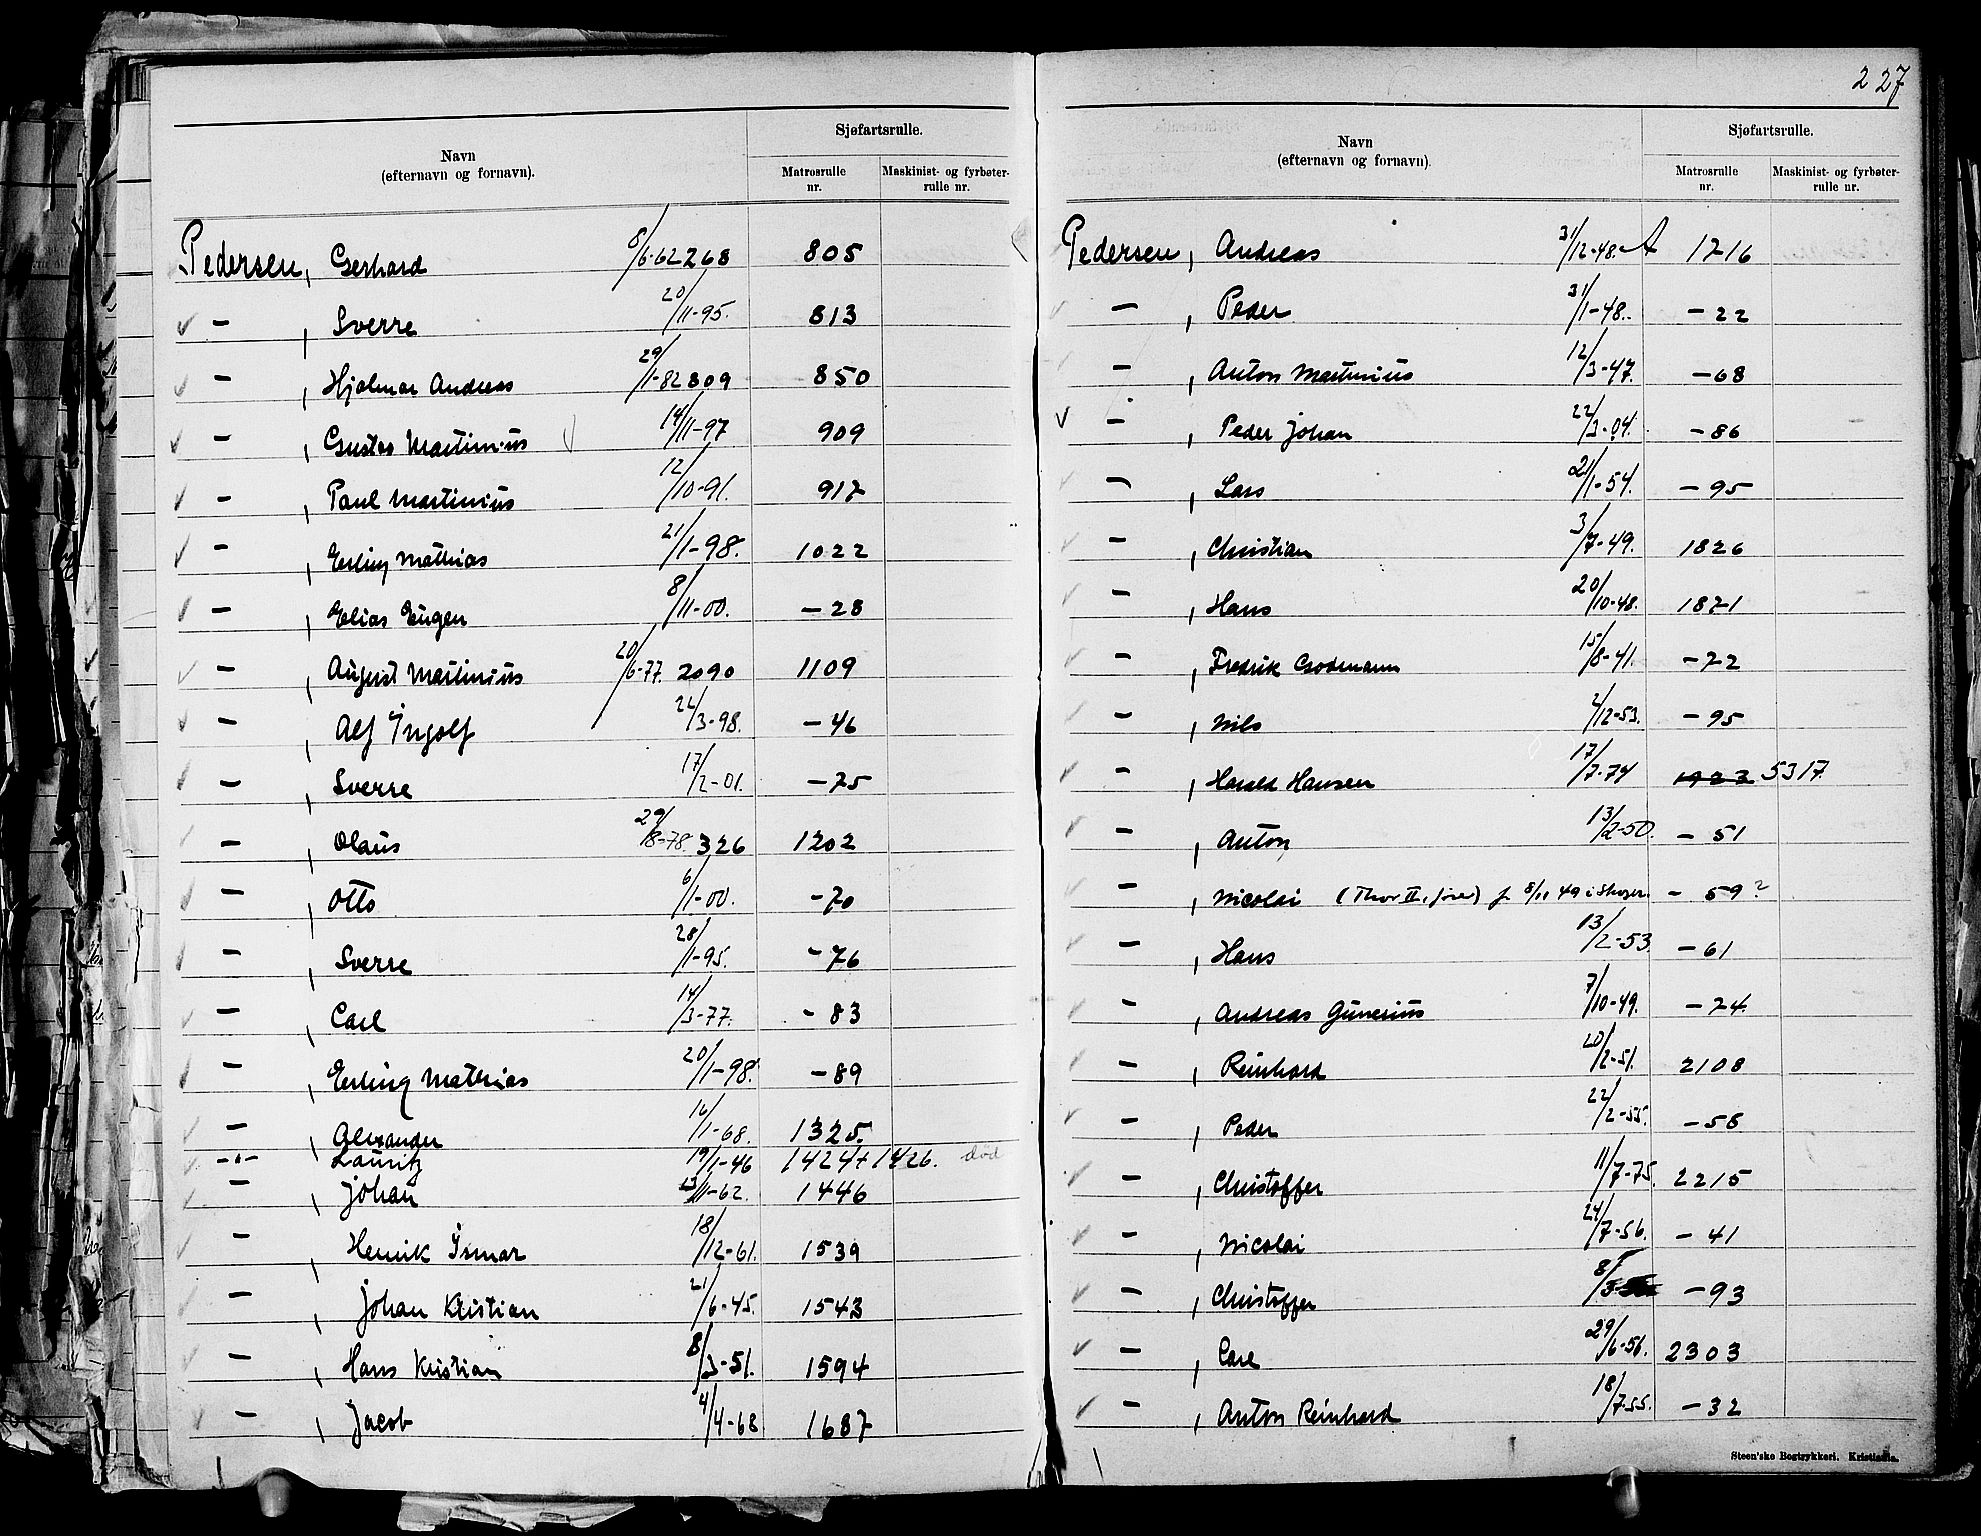 227
Navn
(efternavn og fornavn).
Sjøfartsrulle.
Matrosrulle
nr.
Maskinist- og fyrbøter-
rulle nr.
Pedersen, Gerhard 8/6-62 268 805
— , Sverre 20/11-95. 813
— , Hjalmar Andreas 29/1-82 809 850
— , Gustav Martinius 14/11-97 909
— , Paul Martinius 12/10-91. 917
— , Erling Mathias 21/1-98. 1022
— , Elias Eugen 8/11-00. — 28
— , August Martinius 20/6-77. 2090 1109
— , Alf Ingolf 22/3-98. — 46
— , Sverre 17/2-01. — 75
— , Olaus 29/8-78. 326 1202
— , Otto 6/1-00. — 70
— , Sverre 28/1-95. — 76
— , Carl 14/3-77. — 83
— , Erling Mathias 20/1-98. — 89
— , Alexander 16/1-68. 1325.
— " — Lauritz 19/1-46 1424+1426. død
— , Johan 13/11-62. 1446
— , Henrik Ismar 18/12-61. 1539
— , Johan Kristian 21/6-45. 1543
— , Hans Kristian 8/3-51. 1594
— , Jacob 4/4-68 1687
Navn
(efternavn og fornavn).
Sjøfartsrulle.
Matrosrulle
nr.
Maskinist- og fyrbøter-
rulle nr.
Pedersen, Andreas 31/12-48. A 1716
— , Peder 31/1-48. — 22
— , Anton Martinius 12/3-47. — 68
— , Peder Johan 22/3-04. — 86
— , Lars 21/1-54. — 95
— , Christian 3/7-49. 1826
— , Hans 20/10-48. 1871
— , Fredrik Crodemann 15/8-41. — 72
— , Nils 2/12-53. — 95
— , Harald Hansen 17/7-74 1923 5317.
— , Anton 13/2-50. — 51
— , Nicolai (Thor II, fører) f. 5/11 49 i Skoger. — 59?
— , Hans 13/2-53. — 61
— , Andreas Gunerius 7/10-49. — 74.
— , Reinhard 20/2-51. 2108
— , Peder 22/2-55. — 58
— , Christoffer 11/7-75. 2215
— , Nicolai 24/7-56. — 41
— , Christoffer 8/3 — 93
— , Carl 29/6-56. 2303
— , Anton Reinhard 18/7-55. — 32
Steen'ske Bogtrykkeri. Kristiania.